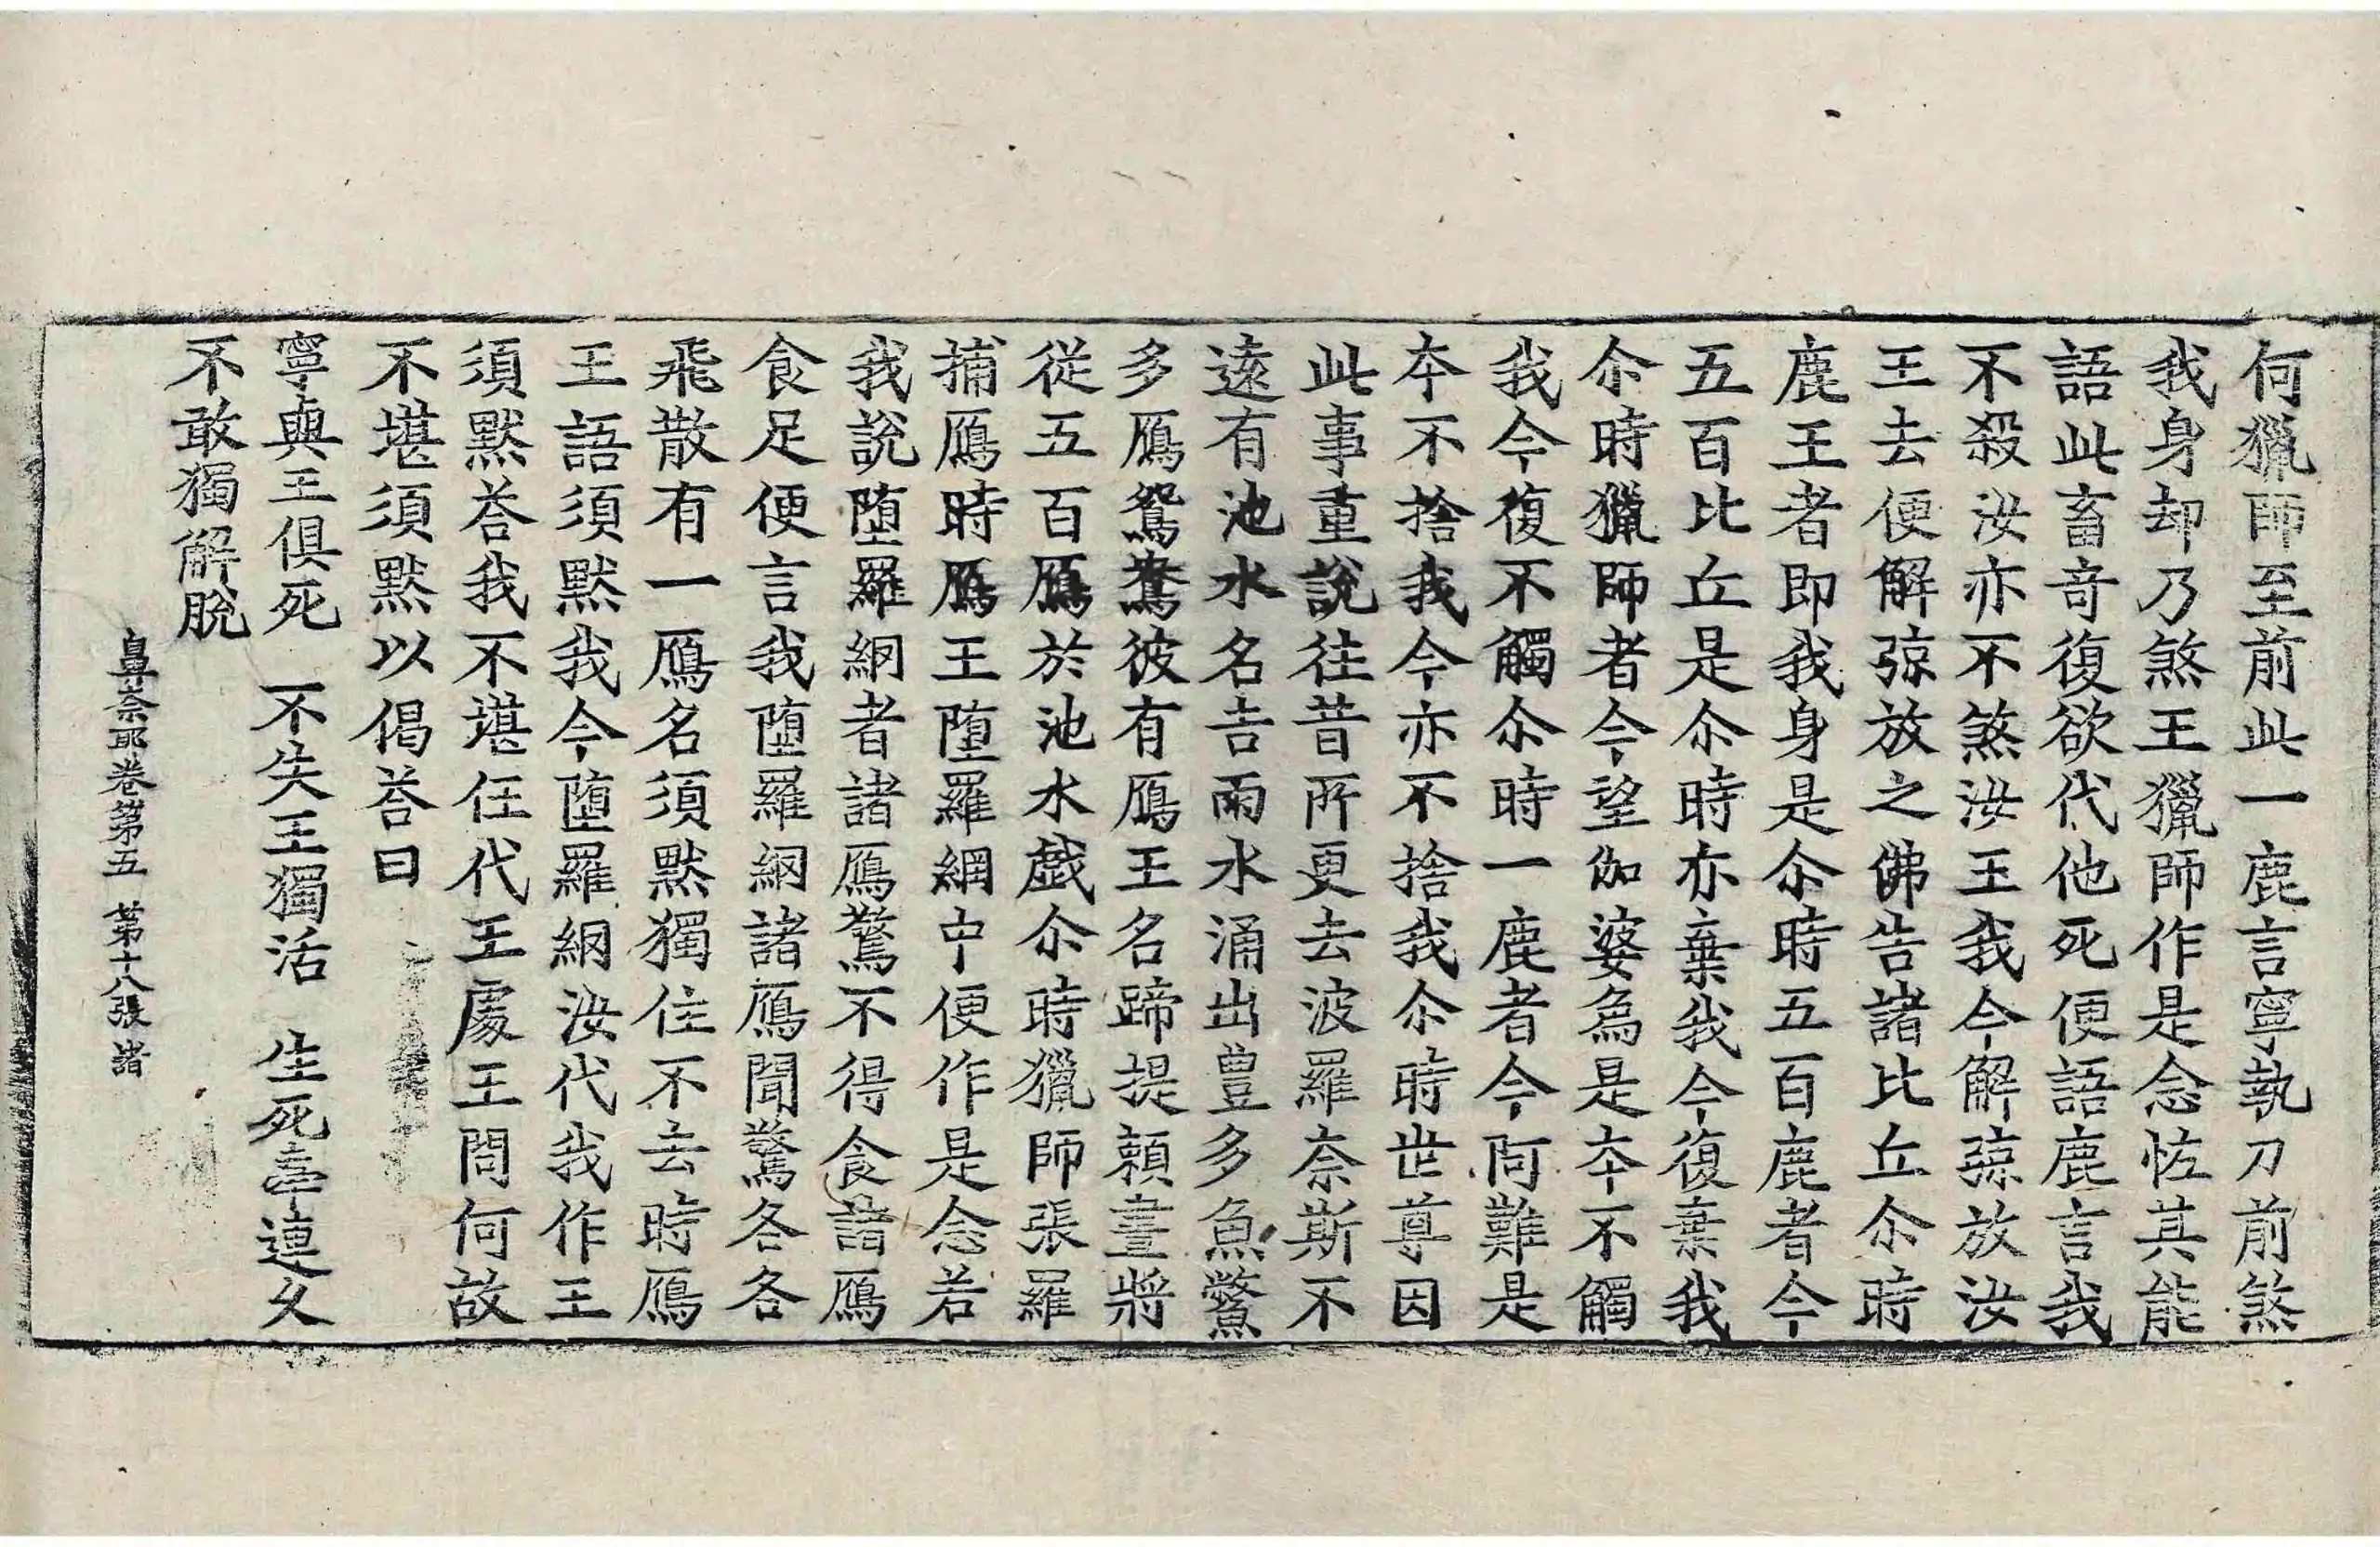 何獵師至前此一鹿言寧執刀前煞
我身却乃煞王獵師作是念恠其能
語此畜竒復欲代他死便語鹿言我
不殺汝亦不煞汝王我今解弶放汝
王去便解弶放之佛告諸比丘尒時
鹿王者即我身是尒時五百鹿者今
五百比丘是尒時亦棄我今復棄我
尒時獵師者今望伽婆爲是夲不觸
我今復不觸尒時一鹿者今阿難是
夲不捨我今亦不捨我尒時世尊因
此事重說往昔所更去波羅奈斯不
遠有池水名吉雨水涌出豊多魚鱉
多鴈鴛鴦彼有鴈王名蹄提賴晝將
從五百鴈於池水戯尒時獵師張羅
捕鴈時鴈王墮羅網中便作是念若
我說墮羅網者諸鴈驚不得食諸鴈
食足便言我墮羅網諸鴈聞驚各各
飛散有一鴈名須黙獨住不去時鴈
王語須黙我今墮羅網汝代我作王
須黙荅我不堪任代王處王問何故
不堪須黙以偈荅曰
寧與王俱死　不失王獨活　生死牽連久
不敢獨解脫
鼻奈耶卷第五　第十八張　諸